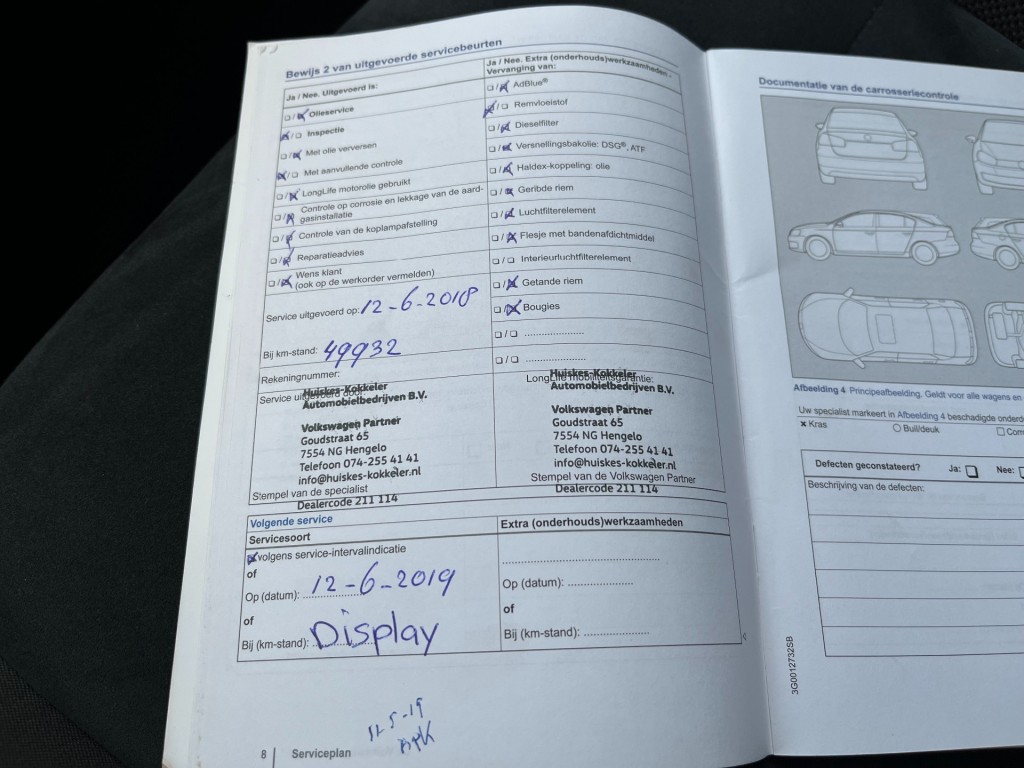 Bewijs 2 van uitgevoerde servicebeurten
Ja / Nee. Uitgevoerd is:
Olieservice
Inspectie
Met olie verversen
Met aanvullende controle
LongLife motorolie gebruikt
Controle op corrosie en lekkage van de aard-
gasinstallatie
Controle van de koplampafstelling
Reparatieadvies
Wens klant
(ook op de werkorder vermelden)
Service uitgevoerd op: 12-6-2018
Bij km-stand: 49932
Rekeningnummer:
Service uitgevoerd door:
Huiskes-Kokkeler
Automobielbedrijven B.V.
Volkswagen Partner
Goudstraat 65
7554 NG Hengelo
Telefoon 074-255 41 41
info@huiskes-kokkeler.nl
Stempel van de specialist
Dealercode 211 114
Ja / Nee. Extra (onderhouds)werkzaamheden -
Vervanging van:
AdBlue®
Remvloeistof
Dieselfilter
Versnellingsbakolie: DSG®, ATF
Haldex-koppeling: olie
Geribde riem
Luchtfilterelement
Flesje met bandenafdichtmiddel
Interieurluchtfilterelement
Getande riem
Bougies
LongLife mobiliteitsgarantie:
Huiskes-Kokkeler
Automobielbedrijven B.V.
Volkswagen Partner
Goudstraat 65
7554 NG Hengelo
Telefoon 074-255 41 41
info@huiskes-kokkeler.nl
Stempel van de Volkswagen Partner
Dealercode 211 114
Volgende service
Servicesoort
volgens service-intervalindicatie
of
Op (datum): 12-6-2019
of
Bij (km-stand): Display
Extra (onderhouds)werkzaamheden
Op (datum):
of
Bij (km-stand):
8 Serviceplan
Documentatie van de carrosseriecontrole
Afbeelding 4 Principeafbeelding. Geldt voor alle wagens en
Uw specialist markeert in Afbeelding 4 beschadigde onderd
x Kras
Buil/deuk
Defecten geconstateerd? Ja: Nee:
Beschrijving van de defecten:
3G0012732SB